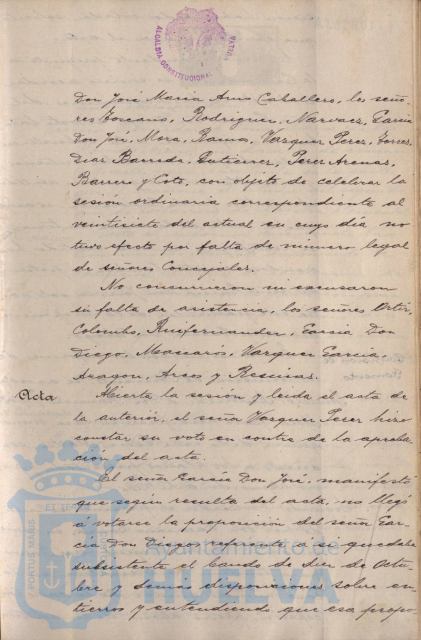 ALCALDIA CONSTITUCIONAL
HUELVA
Don José Maria Amo Caballero, los seño-
res Toscano, Rodriguez, Narvaez, Garcia
Don José, Mora, Ramos, Vazquez Perez, Torres,
Diaz Barreda, Gutierrez, Perez Arenas,
Barrero y Coto, con objeto de celebrar la
sesión ordinaria correspondiente al
veintisiete del actual en cuyo dia no
tuvo efecto por falta de número legal
de señores Concejales.
No concurrieron ni escusaron
su falta de asistencia, los señores Ortiz,
Colombo, Ruifernandez, Garcia Don
Diego, Mascarós, Vazquez Garcia,
Aragon, Arcos y
Acta
Abierta la sesión y leida el acta de
la anterior, el señor Vazquez Perez hizo
constar su voto en contra de la aproba-
ción del acta.
El señor Garcia Don José, manifestó
que según resulta del acta, no llegó
á votarse la proposición del señor Gar-
cia Don Diego referente a si quedaba
subsistente el bando de diez de Octu-
bre y demás disposiciones sobre en-
tierros y entendiendo que esa propo-
PORTUS MARIS
Ayuntamiento de
HUELVA